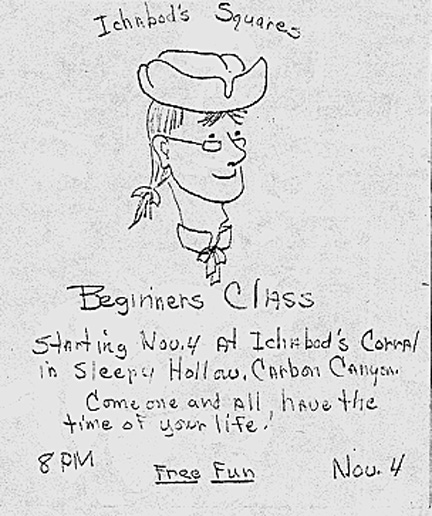 Ichabod's Squares
Beginners Class
Starting Nov. 4 At Ichabod's Corral
in Sleepy Hollow, Carbon Canyon.
Come one and all, have the
time of your life!
8 PM
Free Fun
Nov. 4